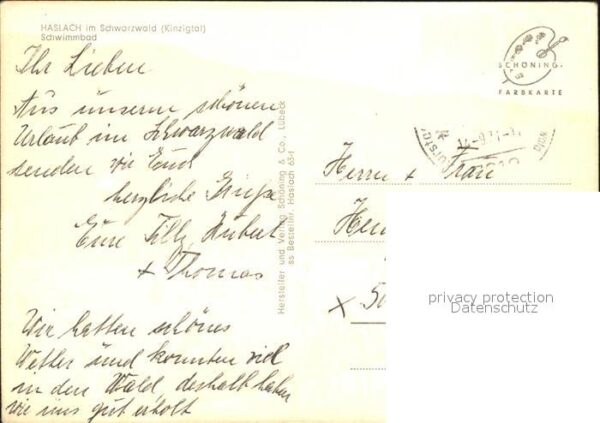 HASLACH im Schwarzwald (Kinzigtal)
Schwimmbad
Ihr Lieben
Aus unserm schönen
Urlaub im Schwarzwald
senden wir Euch
herzliche Grüße
Eure Tilly, Hubert
+ Thomas
Wir hatten schönes
Wetter und konnten viel
in den Wald, deshalb haben
wir uns gut erholt
Hersteller und Verlag Schöning & Co., Lübeck
ss Bestellnr. Haslach 631
SCHÖNING
FARBKARTE
Herrn + Frau
privacy protection
Datenschutz